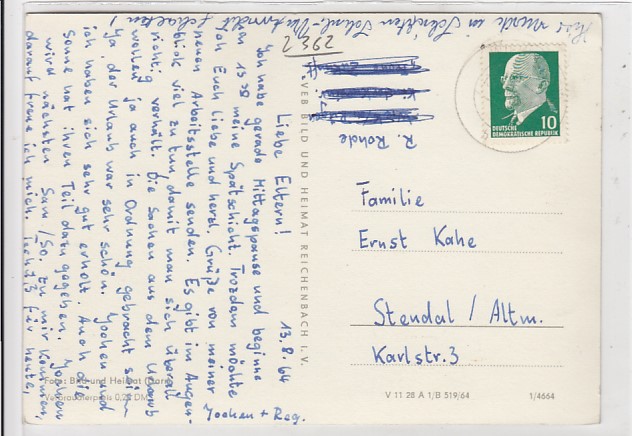 Hier wurde in
2952
R. Rohde
13.8.64
Liebe Eltern!
Ich habe gerade Mittagspause und beginne
um 13³⁰ meine Spätschicht. Trozdem möchte
ich Euch liebe und herzl. Grüße von meiner
neuen Arbeitsstelle senden. Es gibt im Augen-
blick viel zu tun, damit man sich überall
richtig verhält. Die Sachen aus dem Urlaub
wollen ja auch in Ordnung gebracht sein.
Ja, der Urlaub war sehr schön. Jochen und
ich haben sich sehr gut erholt. Auch die
Sonne hat ihren Teil dazu gegeben. Jochen
wird nächsten Sam/So. zu mir kommen,
darauf freue ich mich. Tschüß für heute,
Jochen + Reg.
VEB BILD UND HEIMAT REICHENBACH I. V.
DEUTSCHE
DEMOKRATISCHE REPUBLIK
10
Familie
Ernst Kahe
Stendal / Altm.
Karlstr. 3
Foto: Bild und Heimat
Verbraucherpreis 0,20 DM
V 11 28 A 1/B 519/64
1/4664